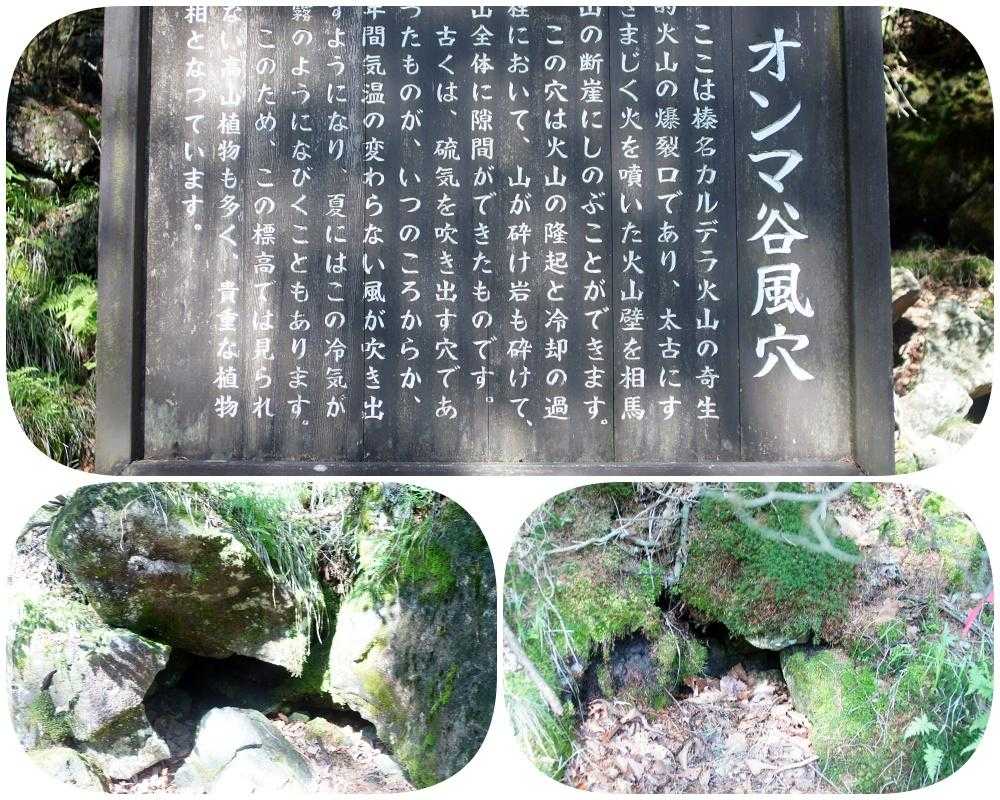 オンマ谷風穴
ここは榛名カルデラ火山の奇生
的火山の爆裂口であり、太古にす
さまじく火を噴いた火山壁を相馬
山の断崖にしのぶことができます。
この穴は火山の隆起と冷却の過
程において、山が砕け岩も砕けて、
山全体に隙間ができたものです。
古くは、硫気を吹き出す穴であ
ったものが、いつのころからか、
年間気温の変わらない風が吹き出
すようになり、夏にはこの冷気が
霧のようになびくこともあります。
このため、この標高では見られ
ない高山植物も多く、貴重な植物
相となっています。